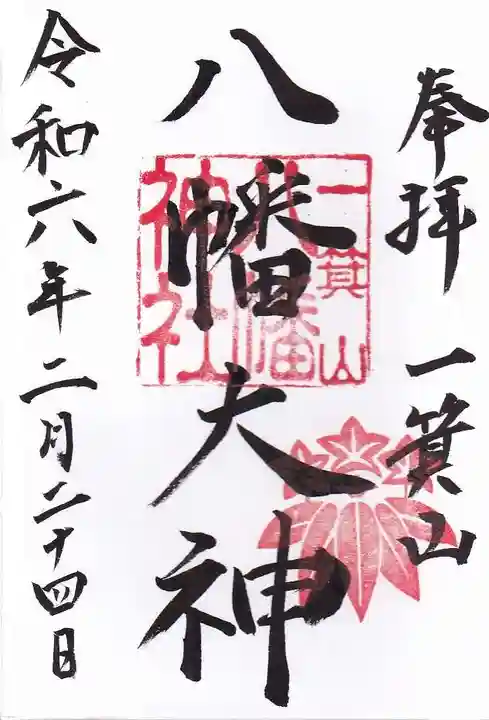 奉拝 一箕山
八幡大神
一箕山
八幡
神社
令和六年二月二十四日